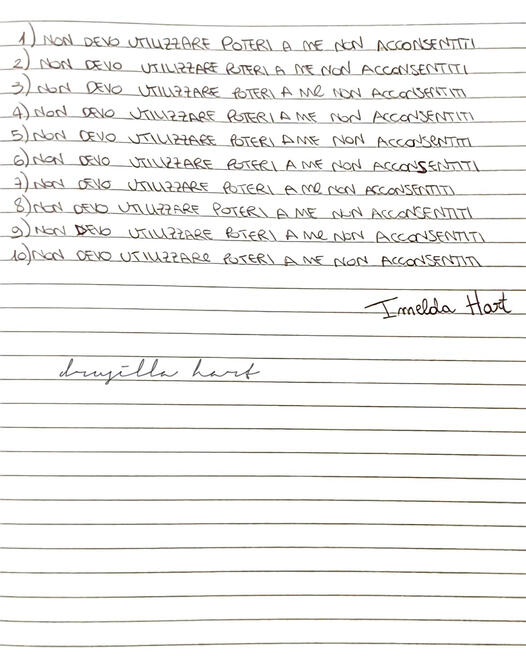 1) NON DEVO UTILIZZARE POTERI A ME NON ACCONSENTITI
2) NON DEVO UTILIZZARE POTERI A ME NON ACCONSENTITI
3) NON DEVO UTILIZZARE POTERI A Me NON ACCONSENTITI
4) NON DEVO UTILIZZARE POTERI A ME NON ACCONSENTITI
5) NON DEVO UTILIZZARE POTERI A ME NON ACCONSENTITI
6) NON DEVO UTILIZZARE POTERI A ME NON ACCONSENTITI
7) NON DEVO UTILIZZARE POTERI A Me NON ACCONSENTITI
8) NON DEVO UTILIZZARE POTERI A ME NON ACCONSENTITI
9) NON DEVO UTILIZZARE POTERI A Me NON ACCONSENTITI
10) NON DEVO UTILIZZARe POTERI A ME NON ACCONSENTITI
Imelda Hart
drusilla hart